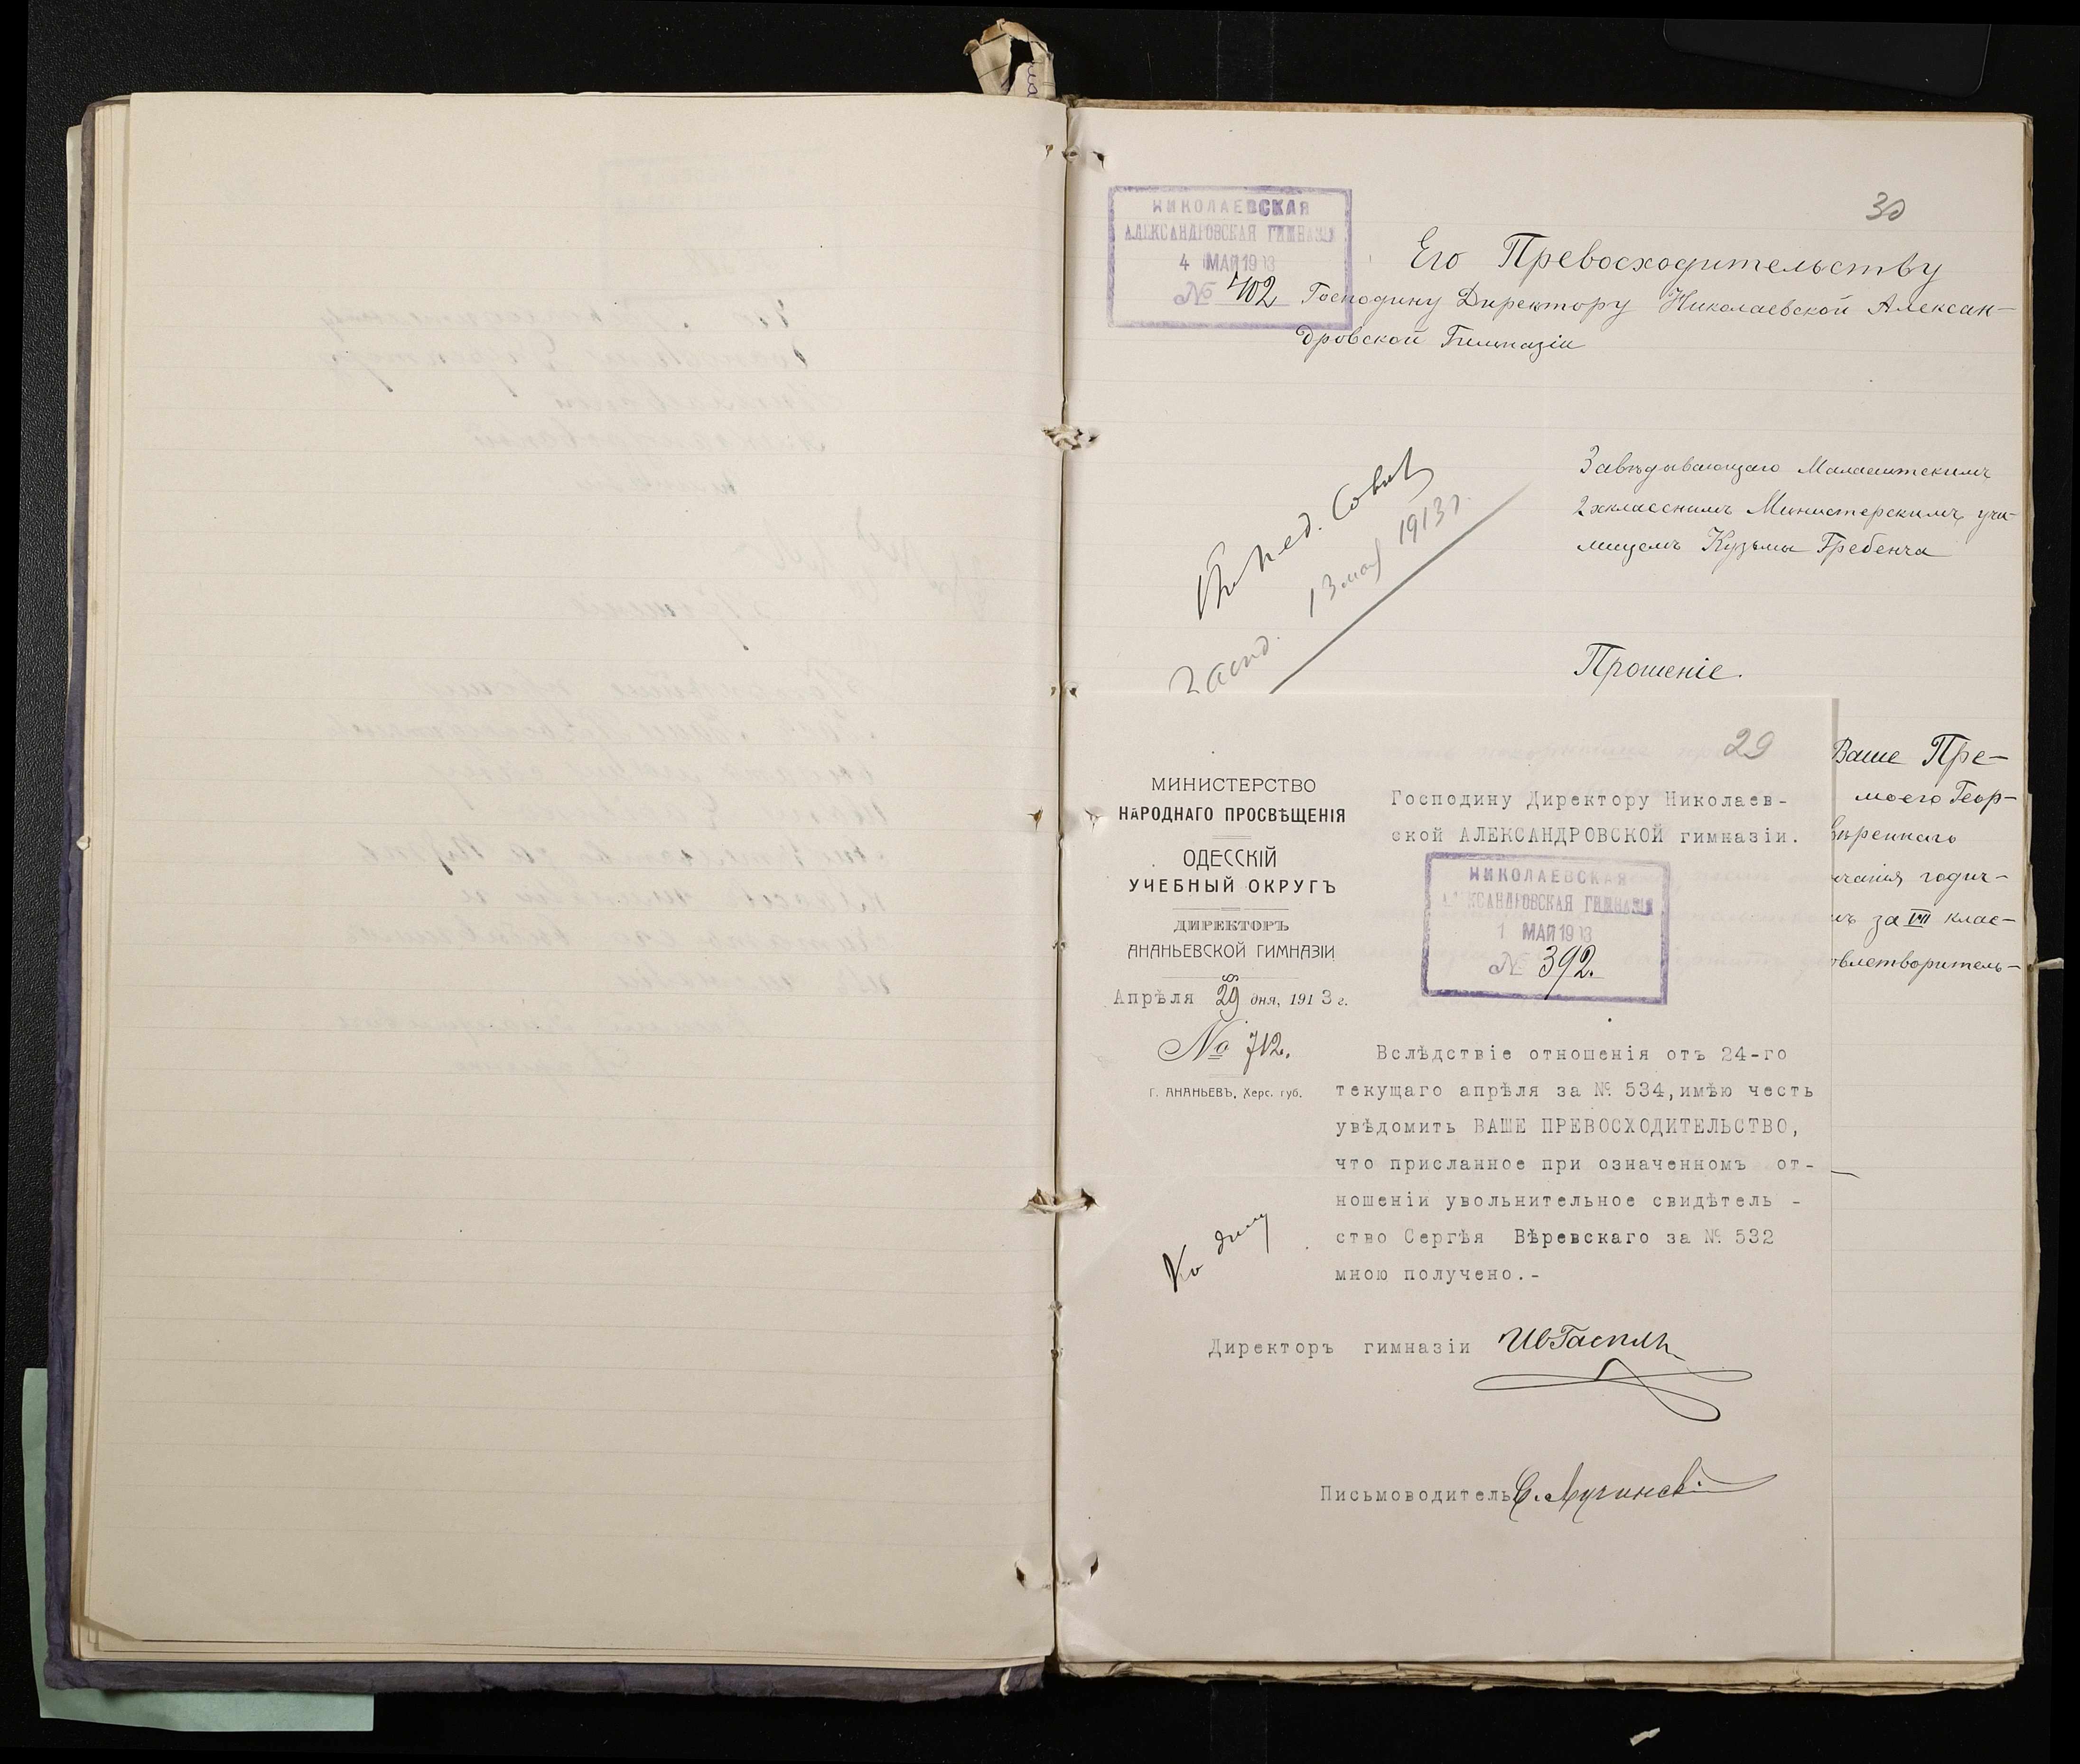 30
НИКОЛАЕВСКАЯ
АЛЕКСАНДРОВСКАЯ ГИМНАЗІЯ
4 МАЙ 1913
№ 402
Его Превосходительству
Господину Директору Николаевской Алексан-
дровской Гимназіи
Завѣдывающаго
2хкласснымъ Министерскимъ учи-
лищемъ Кузьмы Гребенча
Въ пед. Совѣтъ
Засѣд. 13 мая 1913 г.
Прошеніе.
Ваше Пре-
моего Геор-
ввѣреннаго
чанія годич-
за VII клас-
овлетворитель-
29
МИНИСТЕРСТВО
НАРОДНАГО ПРОСВѢЩЕНІЯ
ОДЕССКІЙ
УЧЕБНЫЙ ОКРУГЪ
ДИРЕКТОРЪ
АНАНЬЕВСКОЙ ГИМНАЗІИ
Апрѣля 29 дня, 1913 г.
№ 712.
Г. АНАНЬЕВЪ, Херс. губ.
Господину Директору Николаев-
ской АЛЕКСАНДРОВСКОЙ гимназіи.
НИКОЛАЕВСКАЯ
АЛЕКСАНДРОВСКАЯ ГИМНАЗІЯ
1 МАЙ 1913
№ 392.
Вслѣдствіе отношенія отъ 24-го
текущаго апрѣля за № 534, имѣю честь
увѣдомить ВАШЕ ПРЕВОСХОДИТЕЛЬСТВО,
что присланное при означенномъ от-
ношеніи увольнительное свидѣтель -
ство Сергѣя Вѣревскаго за № 532
мною получено.-
Къ дѣлу
Директоръ гимназіи
Письмоводитель С. Лучинскій